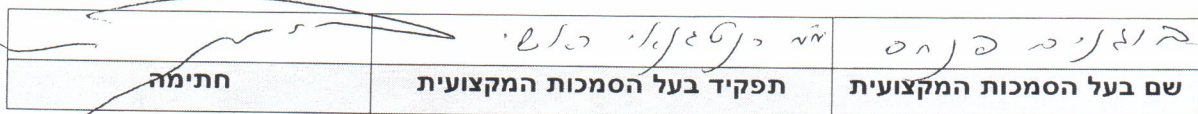 פנחס רנטגנאי ראשי
שם בעל הסמכות המקצועית תפקיד בעל הסמכות המקצועית חתימה